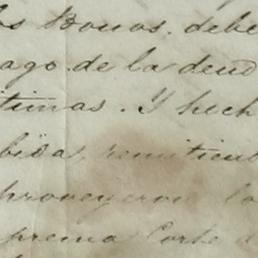 os Bonos. debe
ago de la deud
itimas. Y hech
bida, remitiend
provoyeron lo
prema Corte d